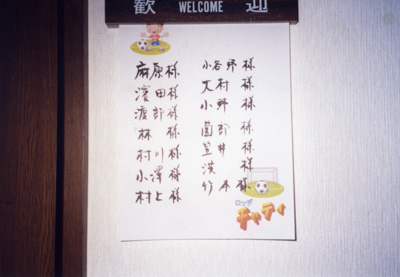 歓 WELCOME 迎
麻原様
濱田様
渡部様
林 様
村川様
小澤様
村上様
小谷野様
大村 様
小野 様
菌部 様
笠井 様
濱 様
竹本様
ロッヂ
チャティ